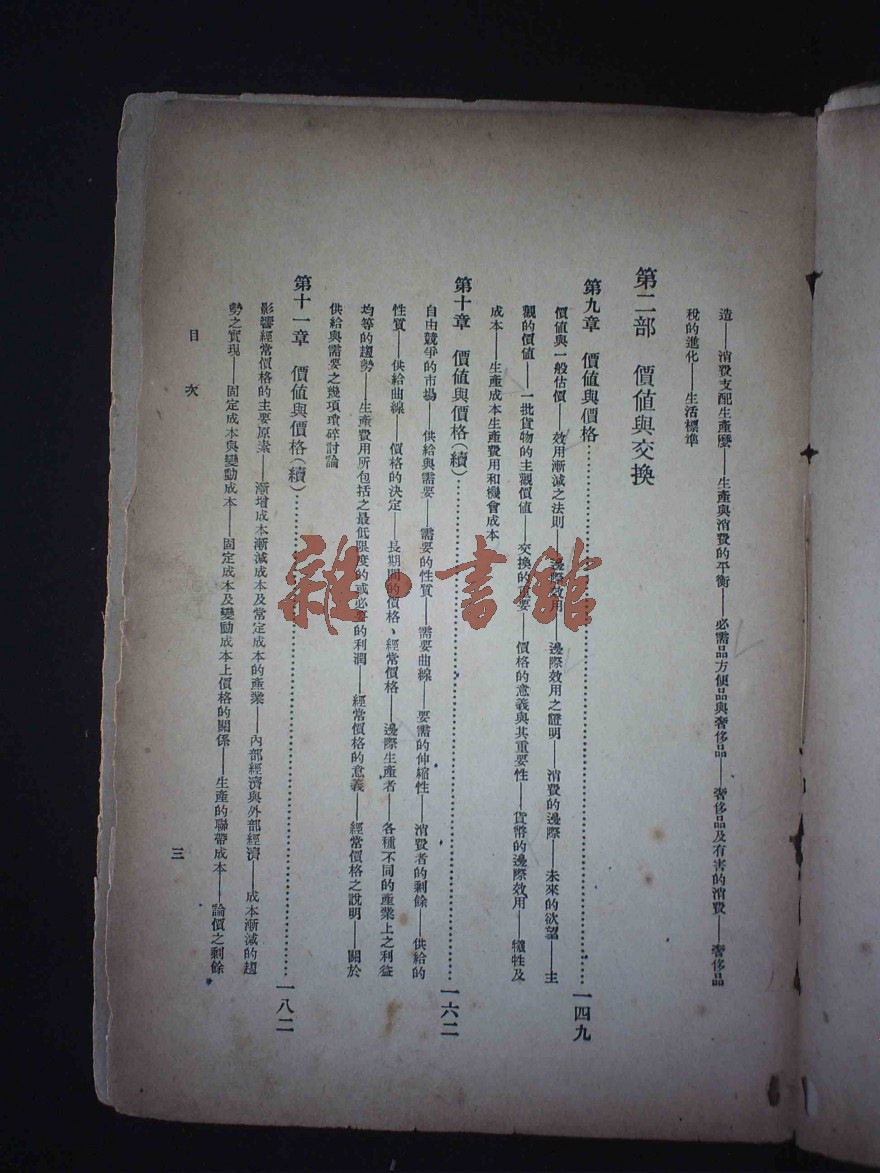 造——消費支配生產麼——生產與消費的平衡——必需品方便品與奢侈品——奢侈品及有害的消費——奢侈品
稅的進化——生活標準
第二部　價値與交換
第九章　價値與價格……………一四九
價値與一般估價——效用漸減之法則——邊際效用——邊際效用之證明——消費的邊際——未來的欲望——主
觀的價値——一批貨物的主觀價値——交換的重要——價格的意義與其重要性——貨幣的邊際效用——犧牲及
成本——生產成本生產費用和機會成本
第十章　價値與價格(續)……………一六二
自由競爭的市場——供給與需要——需要的性質——需要曲線——要需的伸縮性——消費者的剩餘——供給的
性質——供給曲線——價格的決定——長期間的價格、經常價格——邊際生產者——各種不同的產業上之利益
均等的趨勢——生產費用所包括之最低限度的或必要的利潤——經常價格的意義——經常價格之說明——關於
供給與需要之幾項瑣碎討論
第十一章　價値與價格(續)……………一八二
影響經常價格的主要原素——漸增成本漸減成本及常定成本的產業——內部經濟與外部經濟——成本漸減的趨
勢之實現——固定成本與變動成本——固定成本及變動成本上價格的關係——生產的聯帶成本——論價之剩餘
目次
三
雜·書館